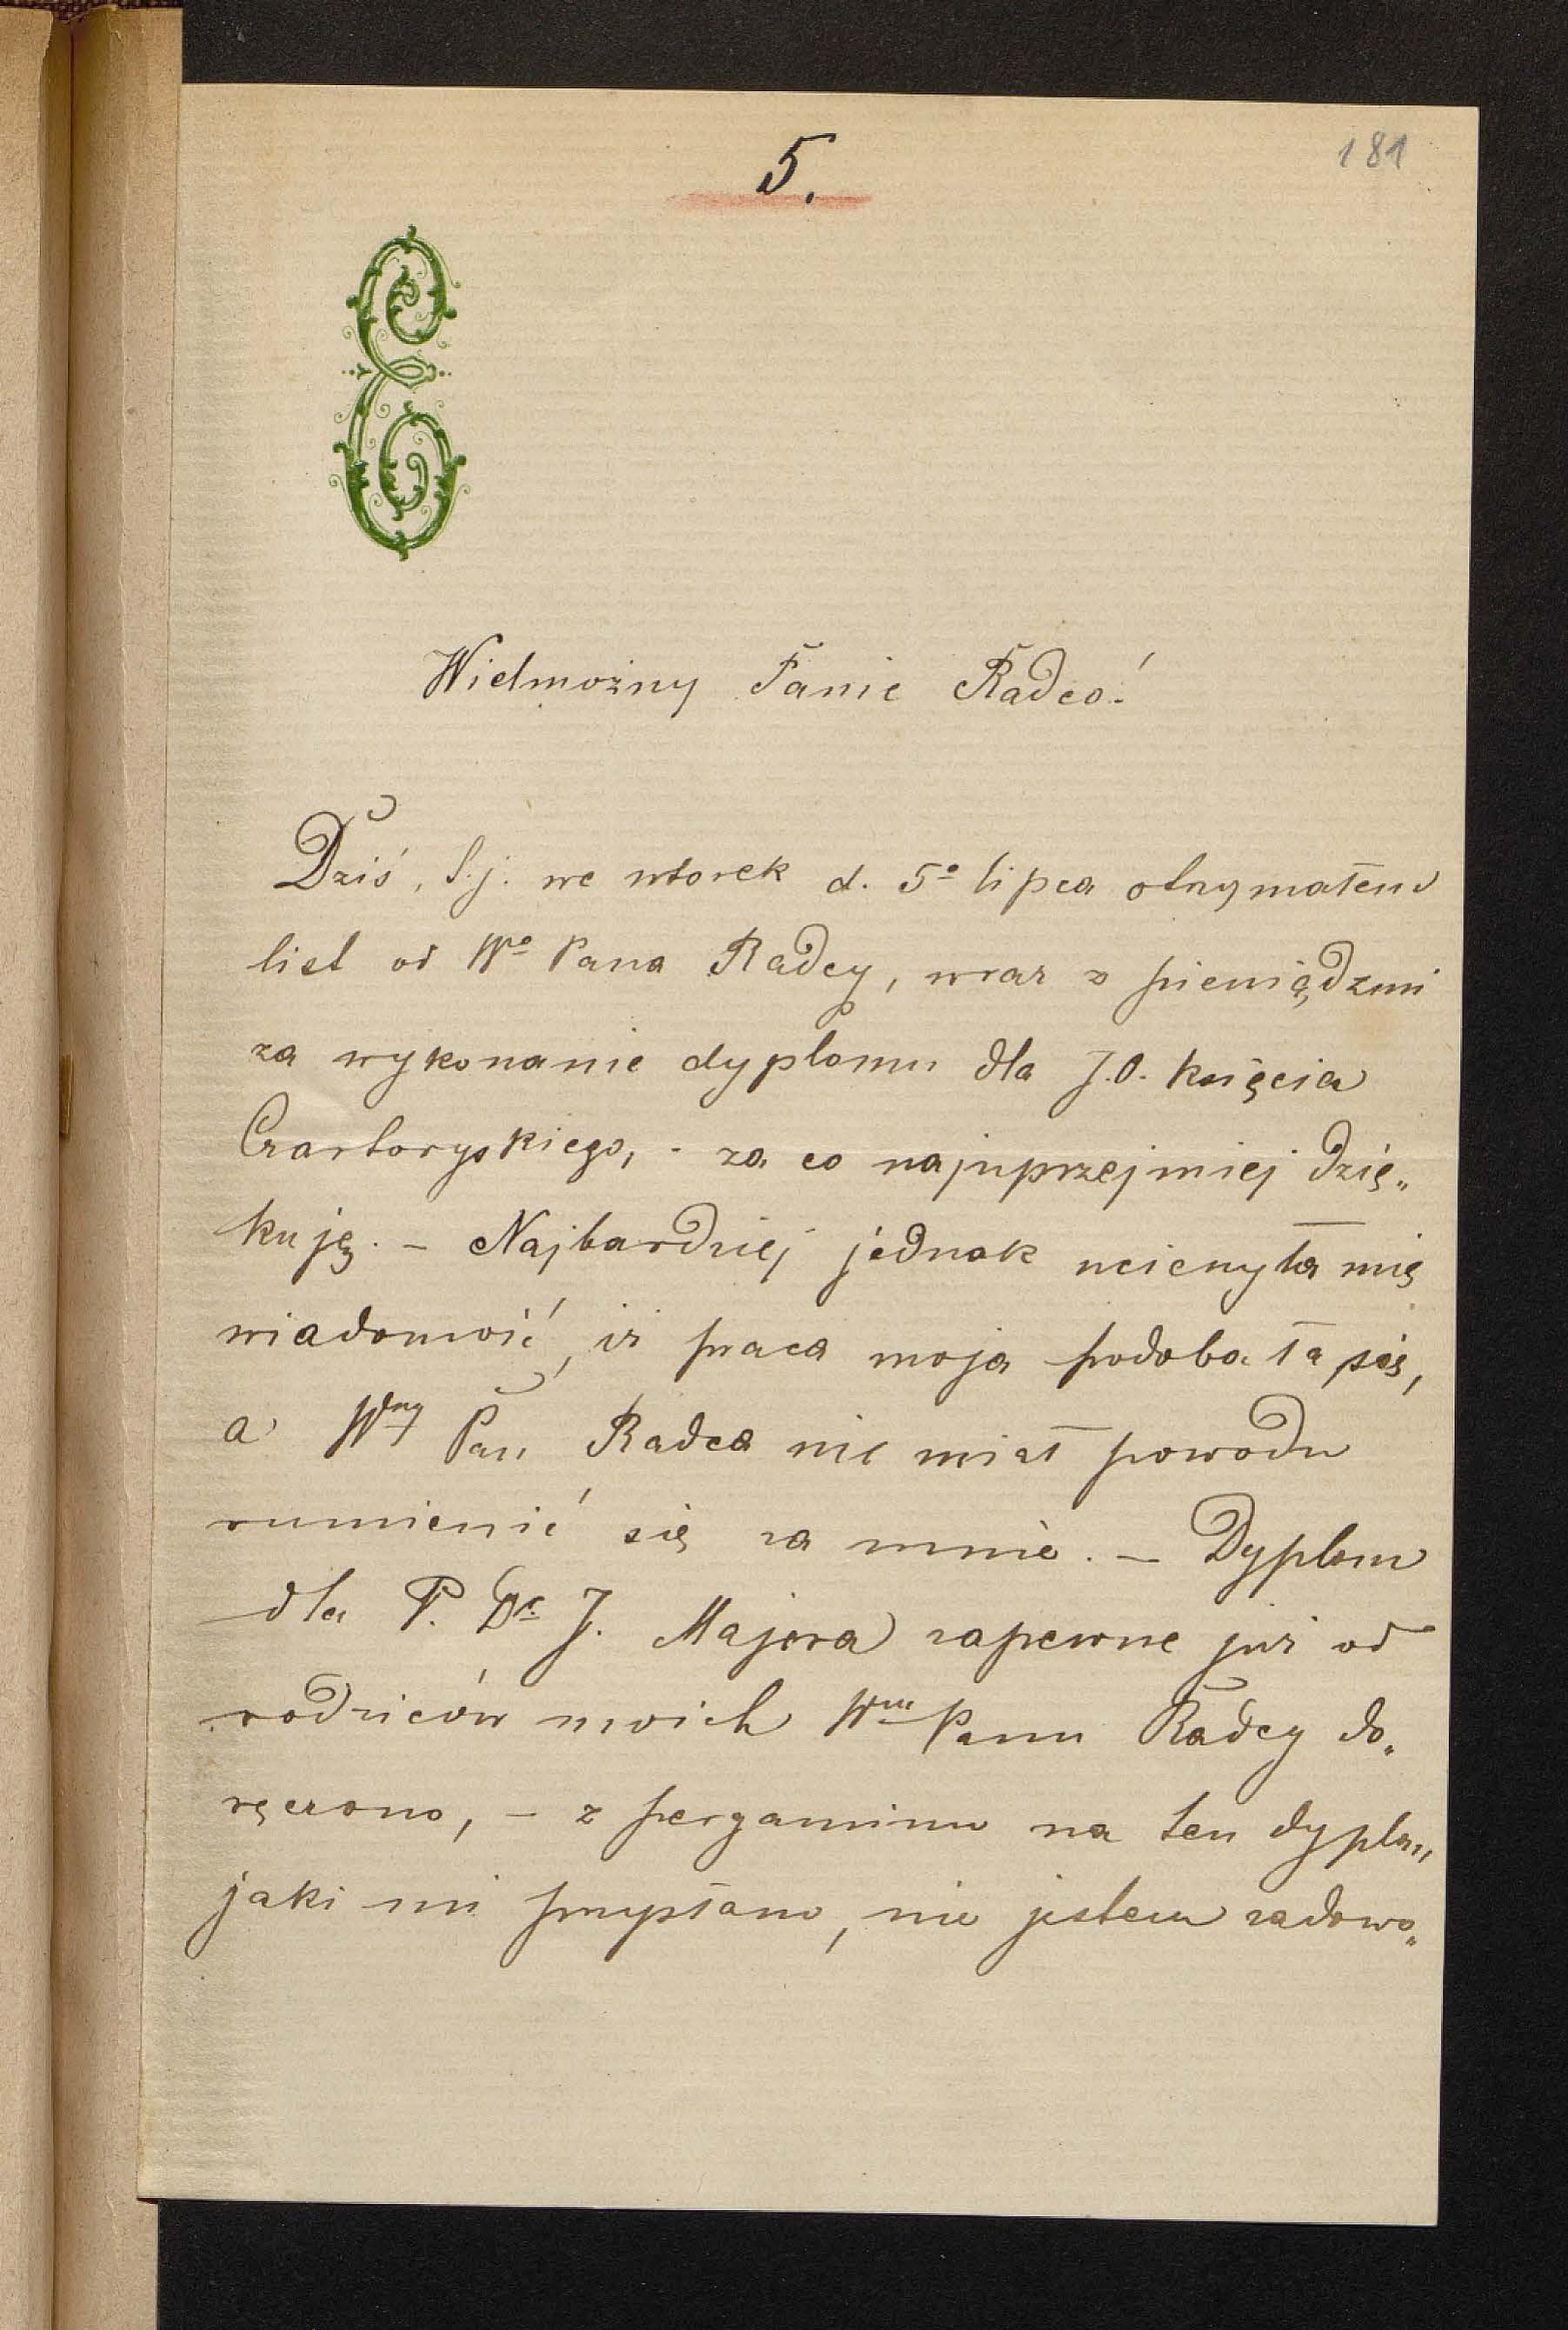 5.
181
E
Wielmożny Panie Radco!
Dziś, t.j. we wtorek d. 5º lipca otrzymałem
list od Wº Pana Radcy, wraz z pieniądzmi
za wykonanie dyplomu dla J.O. księcia
Czartoryskiego, - za co najuprzejmiej dzię„
kuję. – Najbardziej jednak ucieszyła mię
wiadomość, iż praca moja podobała się,
a Wny Pan Radca nie miał powodu
rumienić się za mnie. – Dyplom
dla P. Dr J. Majera zapewne już od
rodziców moich Wmu Panu Radcy do„
ręczono, – z pergaminu na ten dyplom,
jaki mi przysłano, nie jestem zadowo„